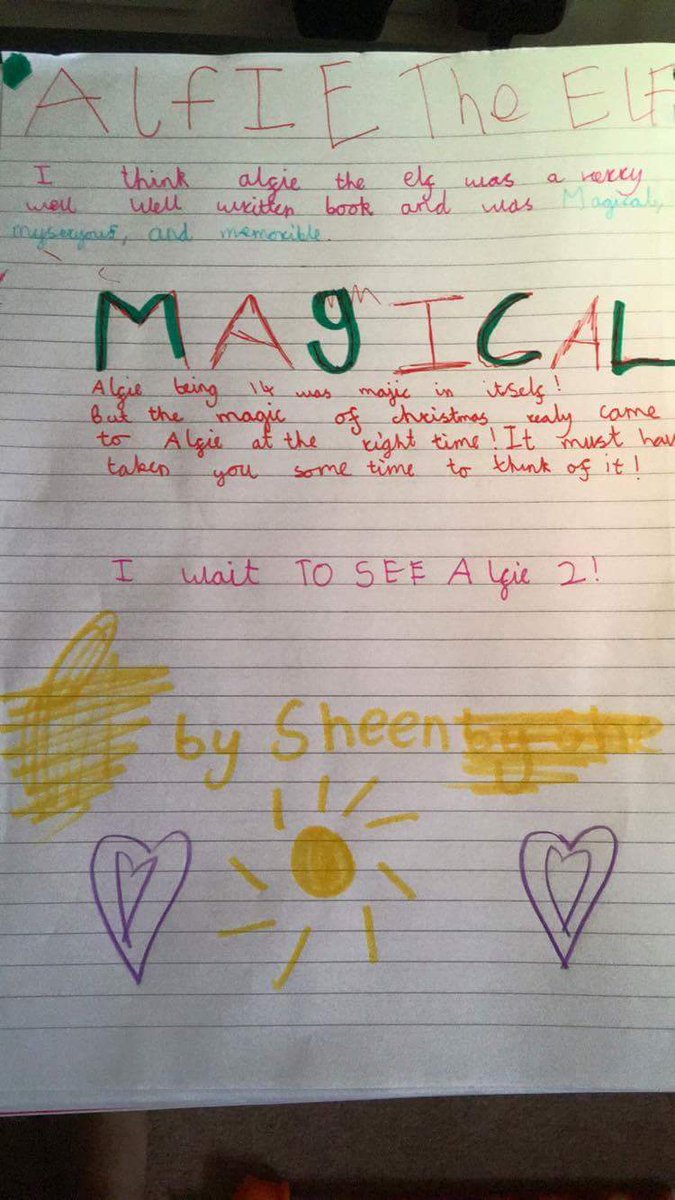 AlfIE The ELF
I think alfie the elf was a verry
well Well written book and was Magical,
myseryous, and memorible.
MAgICAL
Alfie being 14 was majic in itself!
But the magic of christmas realy came
to Alfie at the right time! It must hav
taken you some time to think of it!
I wait TO SEE Alfie 2!
by Sheen